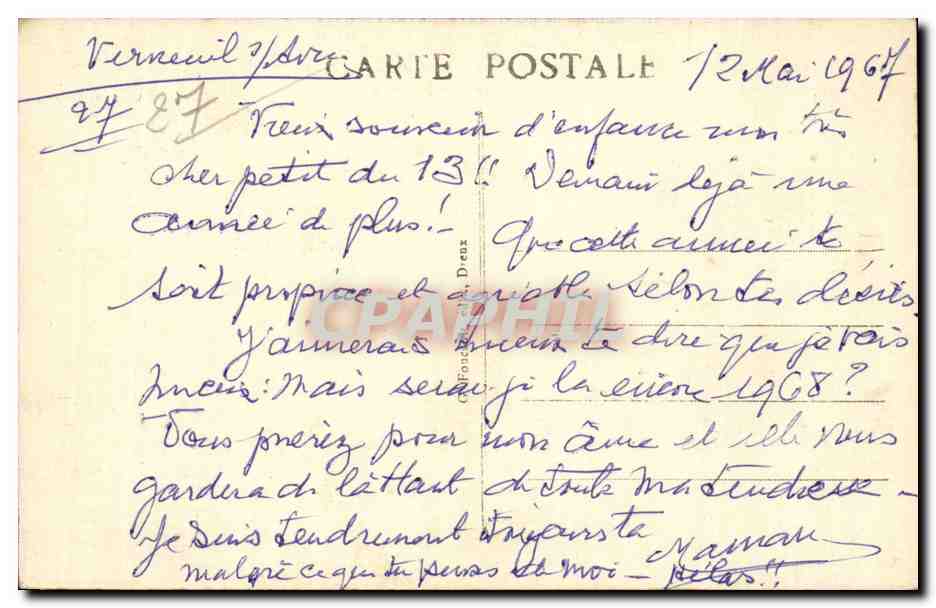 Verneuil s/Avre CARTE POSTALE 12 Mai 1967
27 27
Vieux souvenir d'enfance mon très
cher petit du 13!! Demain déjà une
année de plus!- Que cette année te
soit propice et agréable selon tes désirs
J'aimerais mieux te dire que je vais
mieux: Mais serai-je là encore 1968?
Vous prierez pour mon âme et elle vous
gardera de là Haut de toute Ma tendresse -
Je suis tendrement toujours ta
Maman
malgré ce que tu penses de moi - hélas!!
Foucault, édit., Dreux
CPAPHIL